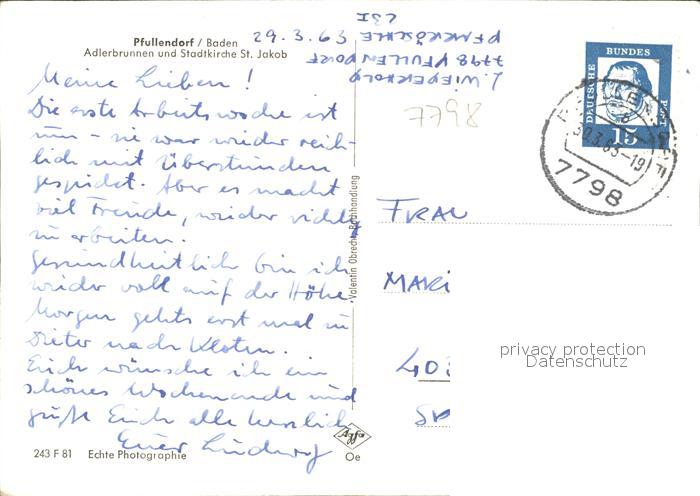 Pfullendorf / Baden
Adlerbrunnen und Stadtkirche St. Jakob
29.3.63
L. WIEDERHOLD
7798 PFULLENDORF
Meine Lieben!
Die erste Arbeitswoche ist
nun - sie war wieder reich-
lich mit Überstunden
gespickt. Aber es macht
viel Freude, wieder richtig
zu arbeiten.
Gesundheitlich bin ich
wieder voll auf der Höhe.
Morgen gehts erst mal zu
Dieter nach Kloten.
Euch wünsche ich ein
schönes Wochenende und
grüße Euch alle herzlich
Euer Ludwig
243 F 81 Echte Photographie
Valentin Obrecht, Buchhandlung
Agfa
Oe
7798
DEUTSCHE BUNDES POST
15
30.3.63-19
7798
FRAU
MARI
403
privacy protection
Datenschutz